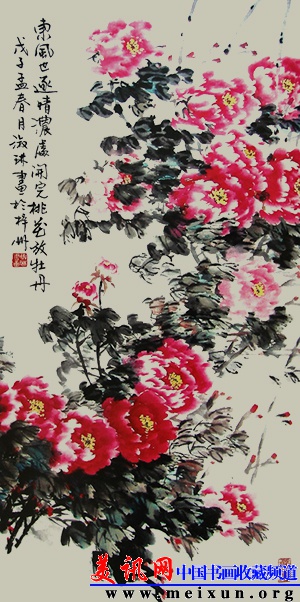 東風也逐情濃處開完桃花放牡丹
戊子孟春月淑琳畫於梓州
美讯网 中国书画收藏频道
www.meixun.org